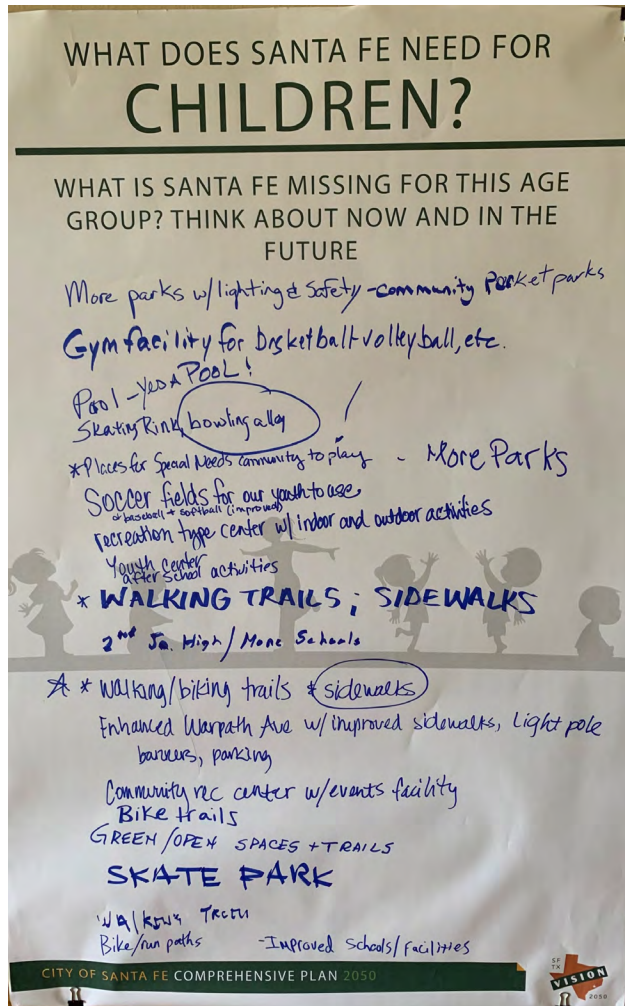 WHAT DOES SANTA FE NEED FOR
CHILDREN?
WHAT IS SANTA FE MISSING FOR THIS AGE
GROUP? THINK ABOUT NOW AND IN THE
FUTURE
More parks w/lighting & Safety - community Pocket parks
Gym facility for basketball-volleyball, etc.
Pool - Yes A POOL!
Skating Rink, bowling alley
*Places for Special Needs community to play
- More Parks
Soccer fields for our youth to use
or baseball + softball (improved)
recreation type center w/ indoor and outdoor activities
Youth center
after school activities
* WALKING TRAILS; SIDEWALKS
2nd Jr. High/More Schools
* walking/biking trails & sidewalks
Enhanced Warpath Ave w/improved sidewalks, Light pole
banners, parking
Community rec center w/events facility
Bike trails
GREEN/OPEN SPACES + TRAILS
SKATE PARK
WALKING
Bike/run paths
-Improved Schools/facilities
CITY OF SANTA FE COMPREHENSIVE PLAN 2050
SF
TX
VISION
2050